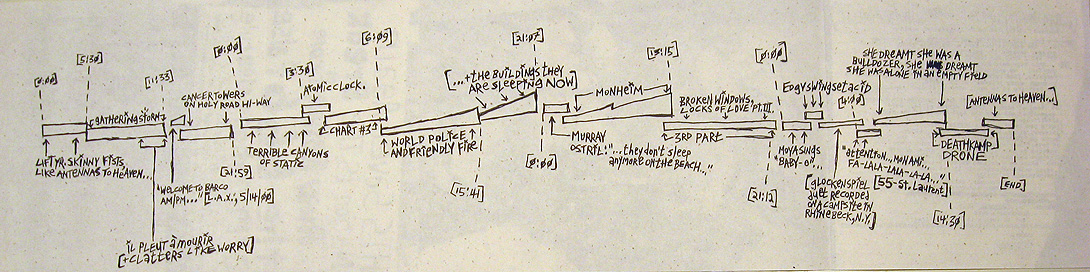 [0:00]
[5:30]
[11:33]
[0:00]
[3:30]
[6:09]
[21:07]
[13:15]
[0:00]
[4:40]
SHE DREAMT SHE WAS A
BULLDOZER, SHE DREAMT
SHE WAS ALONE IN AN EMPTY FIELD
[ANTENNAS TO HEAVEN...]
CANCER TOWERS
ON HOLY ROAD HI-WAY
ATOMIC CLOCK.
[...+THE BUILDINGS THEY
ARE SLEEPING NOW]
MONHEIM
BROKEN WINDOWS,
LOCKS OF LOVE PT. III.
EDGYSWINGSETACID
GATHERING STORM
CHART #3
3RD PART
LIFT YR. SKINNY FISTS,
LIKE ANTENNAS TO HEAVEN...
"WELCOME TO BARCO
AM/PM..." [L.A.X.; 5/14/00]
[21:59]
TERRIBLE CANYONS
OF STATIC
WORLD POLICE
AND FRIENDLY FIRE
[15:41]
[0:00]
MURRAY
OSTRIL: "...THEY DON'T SLEEP
ANYMORE ON THE BEACH..."
[21:12]
MOYA SINGS
"BABY-O"...
[GLOCKENSPIEL
DUET RECORDED
ON A CAMPSITE IN
RHINEBECK, N.Y.]
"ATTENTION...MON AMI...
FA-LALA-LALA-LA-LA..."
[55-ST. LAURENT]
DEATHKAMP
DRONE
[14:30]
[END]
IL PLEUT À MOURIR
[+CLATTERS LIKE WORRY]